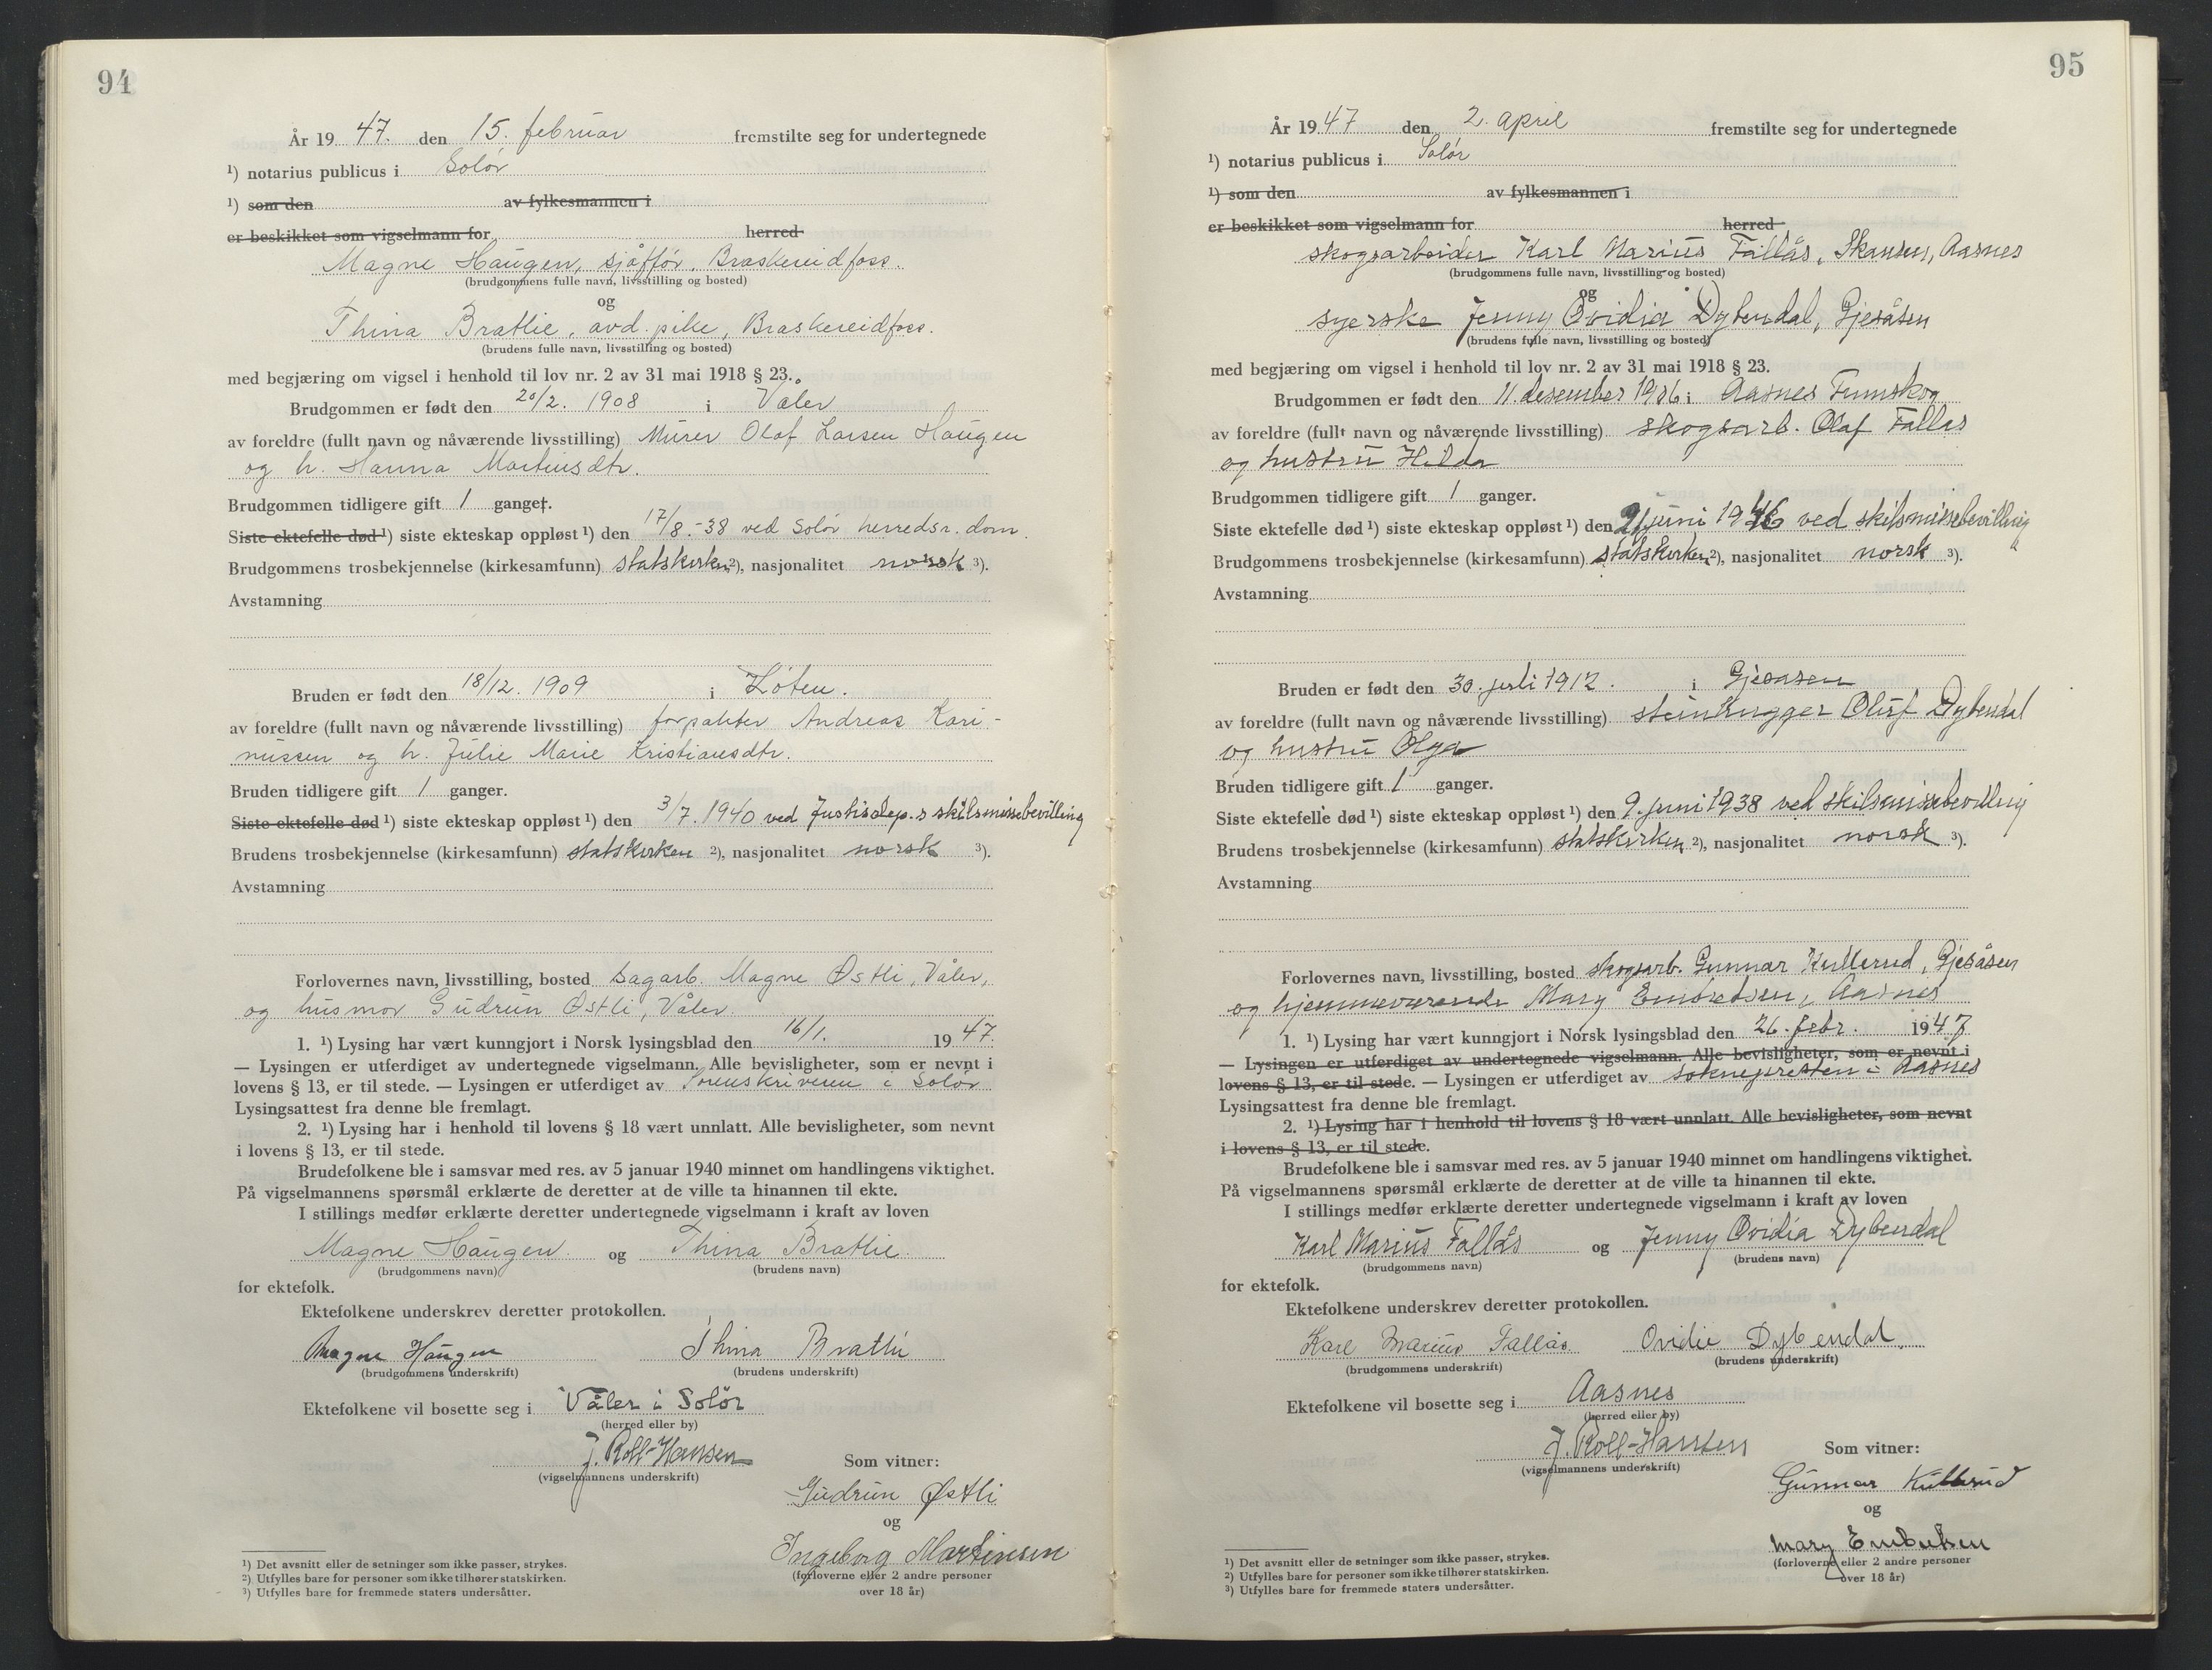 94
År 19 47. den 15. februar fremstilte seg for undertegnede
1) notarius publicus i Solør
1) som den av fylkesmannen i
er beskikket som vigselmann for herred
Magne Haugen, sjåffør, Braskereidfoss.
(brudgommens fulle navn, livsstilling og bosted)
og
Thina Bratlie, avd. pike, Braskereidfoss.
(brudens fulle navn, livsstilling og bosted)
med begjæring om vigsel i henhold til lov nr. 2 av 31 mai 1918 § 23.
Brudgommen er født den 20/2. 1908 i Våler
av foreldre (fullt navn og nåværende livsstilling) Murer Olaf Larsen Haugen
og h. Hanna Martinsdtr.
Brudgommen tidligere gift 1 ganger.
Siste ektefelle død 1) siste ekteskap oppløst 1) den 17/8.-38 ved Solør herredsr. dom.
Brudgommens trosbekjennelse (kirkesamfunn) statskirken 2), nasjonalitet norsk 3).
Avstamning
Bruden er født den 18/12. 1909 i Løten.
av foreldre (fullt navn og nåværende livsstilling) forpakter Andreas Kari-
nussen og h. Julie Marie Kristiansdtr.
Bruden tidligere gift 1 ganger.
Siste ektefelle død 1) siste ekteskap oppløst 1) den 3/7. 1940 ved Justisdep.s skilsmissebevilling
Brudens trosbekjennelse (kirkesamfunn) statskirken 2), nasjonalitet norsk 3).
Avstamning
Forlovernes navn, livsstilling, bosted sagarb. Magne Østli, Våler,
og husmor Gudrun Østli, Våler.
1. 1) Lysing har vært kunngjort i Norsk lysingsblad den 16/1. 19 47.
— Lysingen er utferdiget av undertegnede vigselmann. Alle bevisligheter, som er nevnt i
lovens § 13, er til stede. — Lysingen er utferdiget av Sorenskriveren i Solør
Lysingsattest fra denne ble fremlagt.
2. 1) Lysing har i henhold til lovens § 18 vært unnlatt. Alle bevisligheter, som nevnt
i lovens § 13, er til stede.
Brudefolkene ble i samsvar med res. av 5 januar 1940 minnet om handlingens viktighet.
På vigselmannens spørsmål erklærte de deretter at de ville ta hinannen til ekte.
I stillings medfør erklærte deretter undertegnede vigselmann i kraft av loven
Magne Haugen og Thina Bratlie.
(brudgommens navn) (brudens navn)
for ektefolk.
Ektefolkene underskrev deretter protokollen.
Magne Haugen Thina Bratli
(brudgommens underskrift) (brudens underskrift)
Ektefolkene vil bosette seg i Våler i Solør
(herred eller by)
J. Roll-Hansen
(vigselmannens underskrift)
Som vitner:
Gudrun Østli
og
Ingeborg Martinsen
(forloverne eller 2 andre personer
over 18 år)
1) Det avsnitt eller de setninger som ikke passer, strykes.
2) Utfylles bare for personer som ikke tilhører statskirken.
3) Utfylles bare for fremmede staters undersåtter.
95
År 19 47 den 2. april fremstilte seg for undertegnede
1) notarius publicus i Solør
1) som den av fylkesmannen i
er beskikket som vigselmann for herred
skogsarbeider Karl Marius Fallås, Skansen, Aasnes
(brudgommens fulle navn, livsstilling og bosted)
og
syerske Jenny Ovidia Dybendal, Gjesåsen
(brudens fulle navn, livsstilling og bosted)
med begjæring om vigsel i henhold til lov nr. 2 av 31 mai 1918 § 23.
Brudgommen er født den 11. desember 1906 i Aasnes Finnskog
av foreldre (fullt navn og nåværende livsstilling) skogsarb. Olaf Fallås
og hustru Hilda
Brudgommen tidligere gift 1 ganger.
Siste ektefelle død 1) siste ekteskap oppløst 1) den 21 juni 1946 ved skilsmissebevilling
Brudgommens trosbekjennelse (kirkesamfunn) statskirken 2), nasjonalitet norsk 3).
Avstamning
Bruden er født den 30. juli 1912. i Gjesåsen
av foreldre (fullt navn og nåværende livsstilling) steinhugger Oluf Dybendal
og hustru Olga
Bruden tidligere gift 1 ganger.
Siste ektefelle død 1) siste ekteskap oppløst 1) den 9. juni 1938 ved skilsmissebevilling
Brudens trosbekjennelse (kirkesamfunn) statskirken 2), nasjonalitet norsk 3).
Avstamning
Forlovernes navn, livsstilling, bosted skogsarb. Gunnar Kullerud, Gjesåsen
og hjemmeværende Mary Embretsen, Aasnes
1. 1) Lysing har vært kunngjort i Norsk lysingsblad den 26. febr. 19 47
— Lysingen er utferdiget av undertegnede vigselmann. Alle bevisligheter, som er nevnt i
lovens § 13, er til stede. — Lysingen er utferdiget av soknepresten i Aasnes
Lysingsattest fra denne ble fremlagt.
2. 1) Lysing har i henhold til lovens § 18 vært unnlatt. Alle bevisligheter, som nevnt
i lovens § 13, er til stede.
Brudefolkene ble i samsvar med res. av 5 januar 1940 minnet om handlingens viktighet.
På vigselmannens spørsmål erklærte de deretter at de ville ta hinannen til ekte.
I stillings medfør erklærte deretter undertegnede vigselmann i kraft av loven
Karl Marius Fallås og Jenny Ovidia Dybendal
(brudgommens navn) (brudens navn)
for ektefolk.
Ektefolkene underskrev deretter protokollen.
Karl Marius Fallås. Ovidie Dybendal.
(brudgommens underskrift) (brudens underskrift)
Ektefolkene vil bosette seg i Aasnes
(herred eller by)
J. Roll-Hansen
(vigselmannens underskrift)
Som vitner:
Gunnar Kullerud
og
Mary Embretsen
(forloverne eller 2 andre personer
over 18 år)
1) Det avsnitt eller de setninger som ikke passer, strykes.
2) Utfylles bare for personer som ikke tilhører statskirken.
3) Utfylles bare for fremmede staters undersåtter.